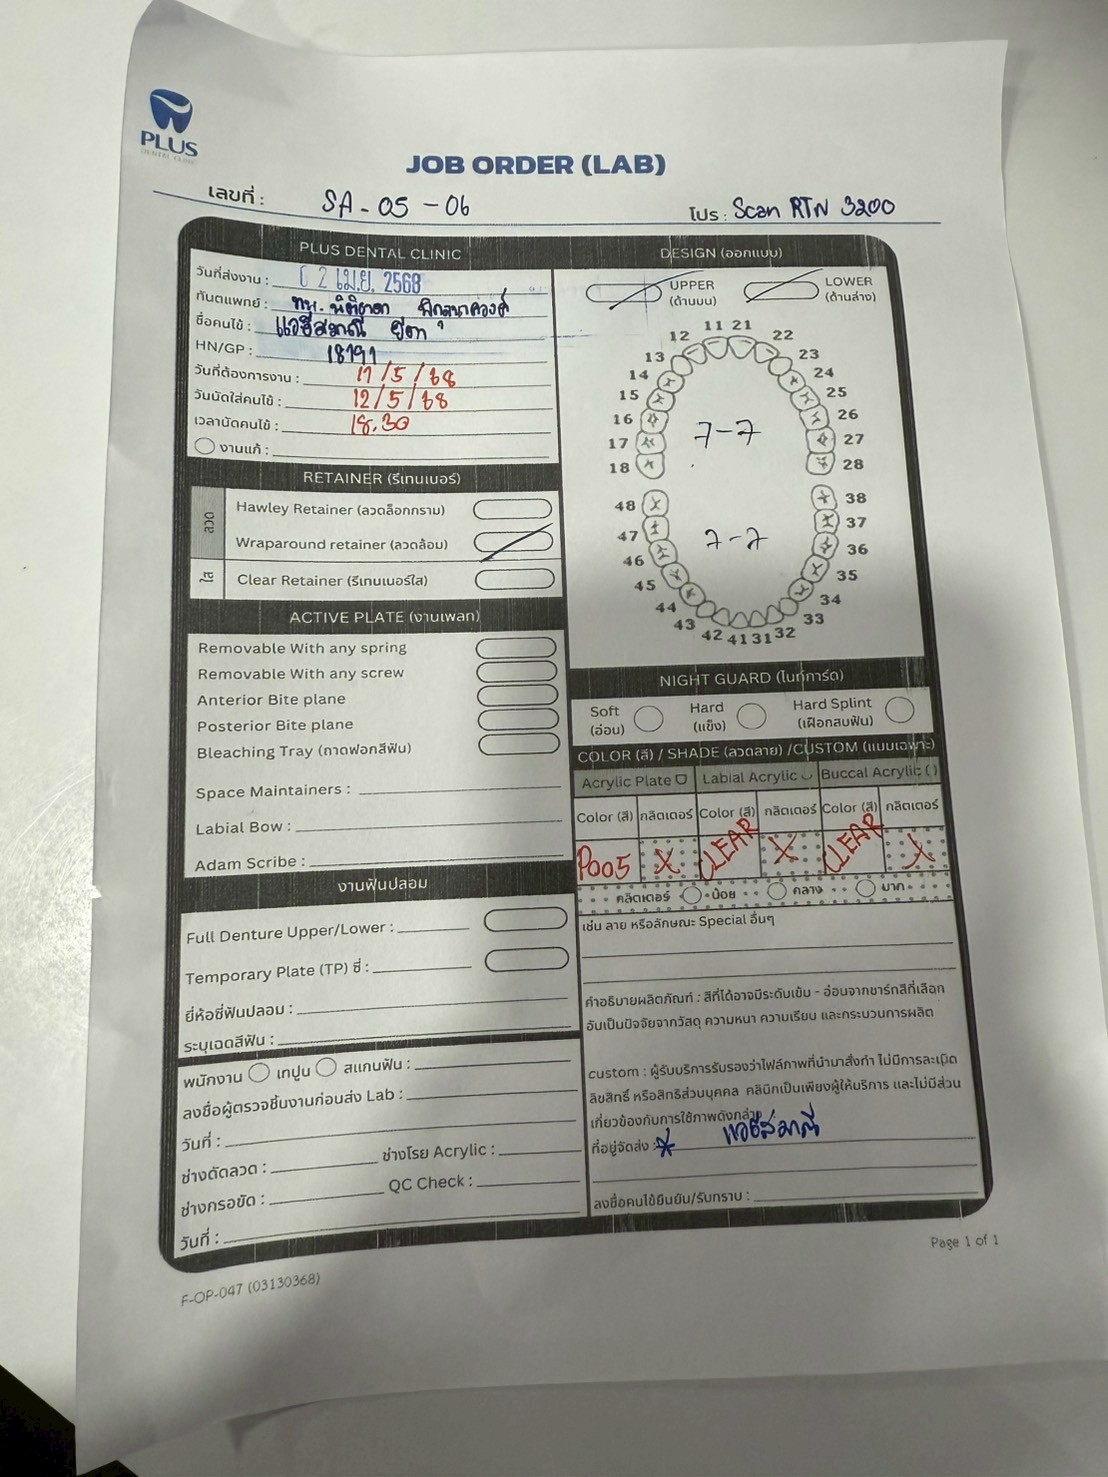 PLUS
DENTAL CLINIC
JOB ORDER (LAB)
เลขที่ : SA - 05 - 06
โปร : Scan RTN 3200
PLUS DENTAL CLINIC
วันที่ส่งงาน : 0 2 เม.ย. 2568
ทันตแพทย์ : ทพ.
ชื่อคนไข้ :
HN/GP : 18791
วันที่ต้องการงาน : 11/5/68
วันนัดใส่คนไข้ : 12/5/68
เวลานัดคนไข้ : 18.30
งานแก้ :
RETAINER (รีเทนเนอร์)
ลวด
Hawley Retainer (ลวดล็อกกราม)
Wraparound retainer (ลวดล้อม)
ใส
Clear Retainer (รีเทนเนอร์ใส)
ACTIVE PLATE (งานเพลท)
Removable With any spring
Removable With any screw
Anterior Bite plane
Posterior Bite plane
Bleaching Tray (ถาดฟอกสีฟัน)
Space Maintainers :
Labial Bow :
Adam Scribe :
งานฟันปลอม
Full Denture Upper/Lower :
Temporary Plate (TP) ซี่ :
ยี่ห้อซี่ฟันปลอม :
ระบุเฉดสีฟัน :
พนักงาน เทปูน สแกนฟัน :
ลงชื่อผู้ตรวจชิ้นงานก่อนส่ง Lab :
วันที่ :
ช่างดัดลวด : ช่างโรย Acrylic :
ช่างกรอขัด : QC Check :
วันที่ :
DESIGN (ออกแบบ)
UPPER LOWER
(ด้านบน) (ด้านล่าง)
11 21
12 22
13 23
14 24
15 25
16 26
17 7-7 27
18 28
48 38
47 7-7 37
46 36
45 35
44 34
43 33
42 41 31 32
NIGHT GUARD (ไนท์การ์ด)
Soft Hard Hard Splint
(อ่อน) (แข็ง) (เฝือกสบฟัน)
COLOR (สี) / SHADE (ลวดลาย) /CUSTOM (แบบเฉพาะ)
Acrylic Plate Labial Acrylic Buccal Acrylic ( )
Color (สี) กลิตเตอร์ Color (สี) กลิตเตอร์ Color (สี) กลิตเตอร์
P005 X CLEAR X CLEAR X
กลิตเตอร์ น้อย กลาง มาก
เช่น ลาย หรือลักษณะ Special อื่นๆ
คำอธิบายผลิตภัณฑ์ : สีที่ได้อาจมีระดับเข้ม - อ่อนจากชาร์ทสีที่เลือก
อันเป็นปัจจัยจากวัสดุ ความหนา ความเรียบ และกระบวนการผลิต
custom : ผู้รับบริการรับรองว่าไฟล์ภาพที่นำมาสั่งทำ ไม่มีการละเมิด
ลิขสิทธิ์ หรือสิทธิส่วนบุคคล คลินิกเป็นเพียงผู้ให้บริการ และไม่มีส่วน
เกี่ยวข้องกับการใช้ภาพดังกล่าว
ที่อยู่จัดส่ง :
ลงชื่อคนไข้ยืนยัน/รับทราบ :
Page 1 of 1
F-OP-047 (03130368)